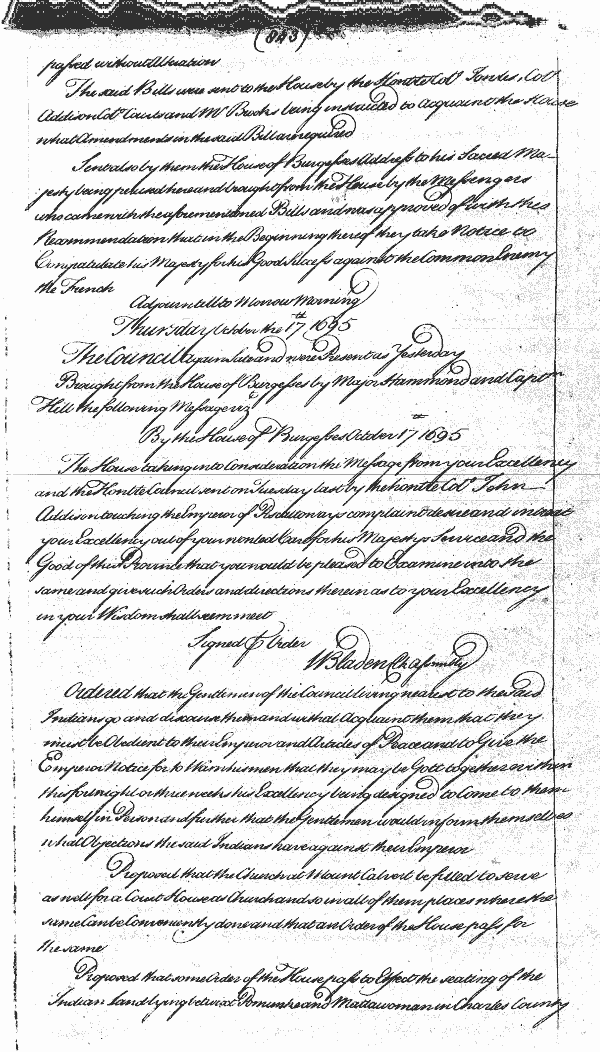 (843)
passed without Alteration
The said Bills were sent to the House by the Honble Col. Jowles, Col.
Addison Col. Courts and Mr Brooks being instructed to Acquaint the House
what Amendments in the said Bill are required
Sent also by them the House of Burgesses Address to his Sacred Ma-
jesty being perused here and brought from the House by the Messengers
who came with the aforementioned Bills and was approved of with this
Recommendation that in the Beginning thereof they take Notice to
Congratulate his Majesty for his Good Success against the Common Enemy
the French
Adjourn till to Morrow Morning
Thursday October the 17th 1695
The Council again Sate and were Present as Yesterday
Brought from the House of Burgesses by Major Hammond and Captn
Hill the following Message vizt
By the House of Burgesses October 17th 1695
The House taking into Consideration the Message from your Excellency
and the Honble Council sent on Tuesday last by the honble Col. John
Addison touching the Emperor of Piscattoways complaint desire and intreat
your Excellency out of your wonted Care for his Majestys Service and the
Good of this Province that you would be pleased to Examine into the
same and give such Orders and directions therein as to your Excellency
in your Wisdom shall seem meet
Signed p Order
W Bladen Cl assembly
Ordered that the Gentlemen of the Council living nearest to the said
Indians go and discourse them and withal Acquaint them that they
must be Obedient to their Emperor and Articles of Peace and to Give the
Emperor Notice for to Warn his men that they may be Gott together within
this fortnight or three weeks his Excellency being designed to Come to them
himself in Person and further that the Gentlemen would inform themselves
what Objections the said Indians have against their Emperor
Proposed that the Church at Mount Calvert be fitted to serve
as well for a Court House as Church and so in all other places where the
same Can be Conveniently done and that an Order of the House pass for
the same
Proposed that some Order of the House pass to Effect the seating of the
Indian Land lying betwixt Pomunkey and Mattawoman in Charles County